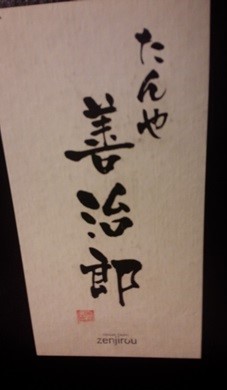 たんや
善治郎
zenjirou